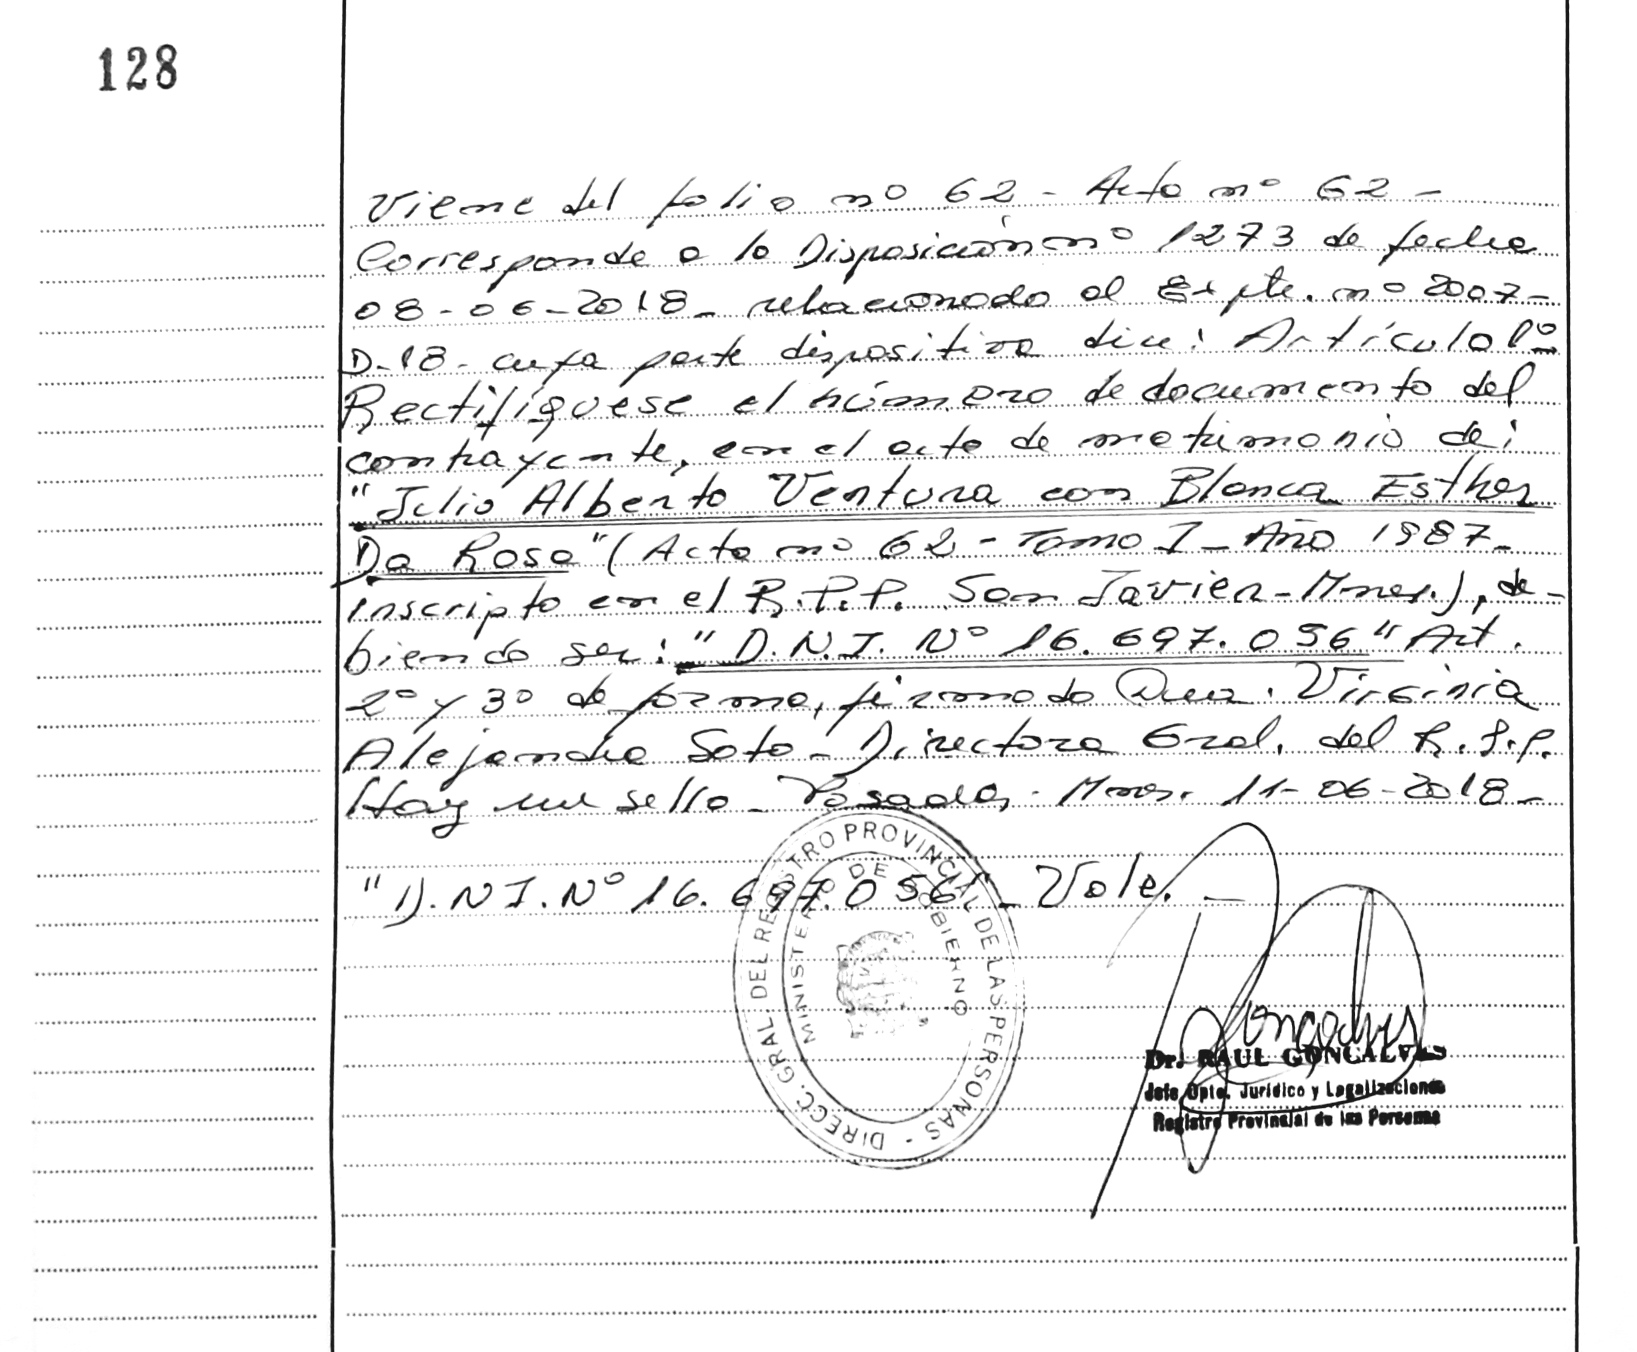 128
Viene del folio nº 62 - Acta nº 62 -
Corresponde a la Disposición nº 1273 de fecha
08-06-2018- relacionado al Expte. nº 2007-
D-18- cuya parte dispositiva dice: Artículo 1º
Rectifíquese el número de documento del
contrayente, en el acta de matrimonio de:
"Julio Alberto Ventura con Blanca Esther
Da Rosa" (Acta nº 62 - Tomo I - Año 1987-
inscripto en el R.P.P. San Javier-Mnes.), de-
biendo ser: "D.N.I. Nº 16.697.056" Art.
2º y 3º de forma, firmado Virginia
Alejandra Soto - Directora Gral. del R.P.P.
Hay un sello - Posadas, Mnes. 11-06-2018-
"D.N.I. Nº 16.697.056" - Vale. -
DIRECC. GRAL. DEL REGISTRO PROVINCIAL DE LAS PERSONAS -
MINISTERIO DE GOBIERNO
Goncalves
Dr. RAUL GONCALVES
Jefe Dpto. Jurídico y Legalizaciones
Registro Provincial de las Personas